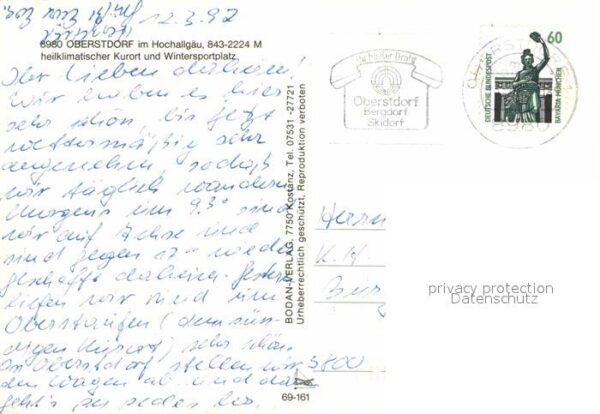 12.3.92
8980 OBERSTDORF im Hochallgäu, 843-2224 M
heilklimatischer Kurort und Wintersportplatz
Ihr Lieben daheim!
Wir haben es hier
sehr schön, bis jetzt
wettermäßig sehr
angenehm sodaß
wir täglich wandern
Morgens um 9.30 sind
wir auf Achse und
sind gegen 17 - wieder
geschafft daheim. Gestern
liefen wir rund um
Oberstaufen (dem
Kurort) sehr schön.
In Oberstdorf stellen wir
den Wagen ab und dann
geht's zu jedes
BODAN-VERLAG, 7750 Kostanz, Tel. 07531-27721
Urheberrechtlich geschützt, Reproduktion verboten
69-161
Ihr heißer Draht
Oberstdorf
Bergdorf
Skidorf
8980
60
DEUTSCHE BUNDESPOST
BAVARIA MÜNCHEN
Herrn
K. H.
5800
privacy protection
Datenschutz